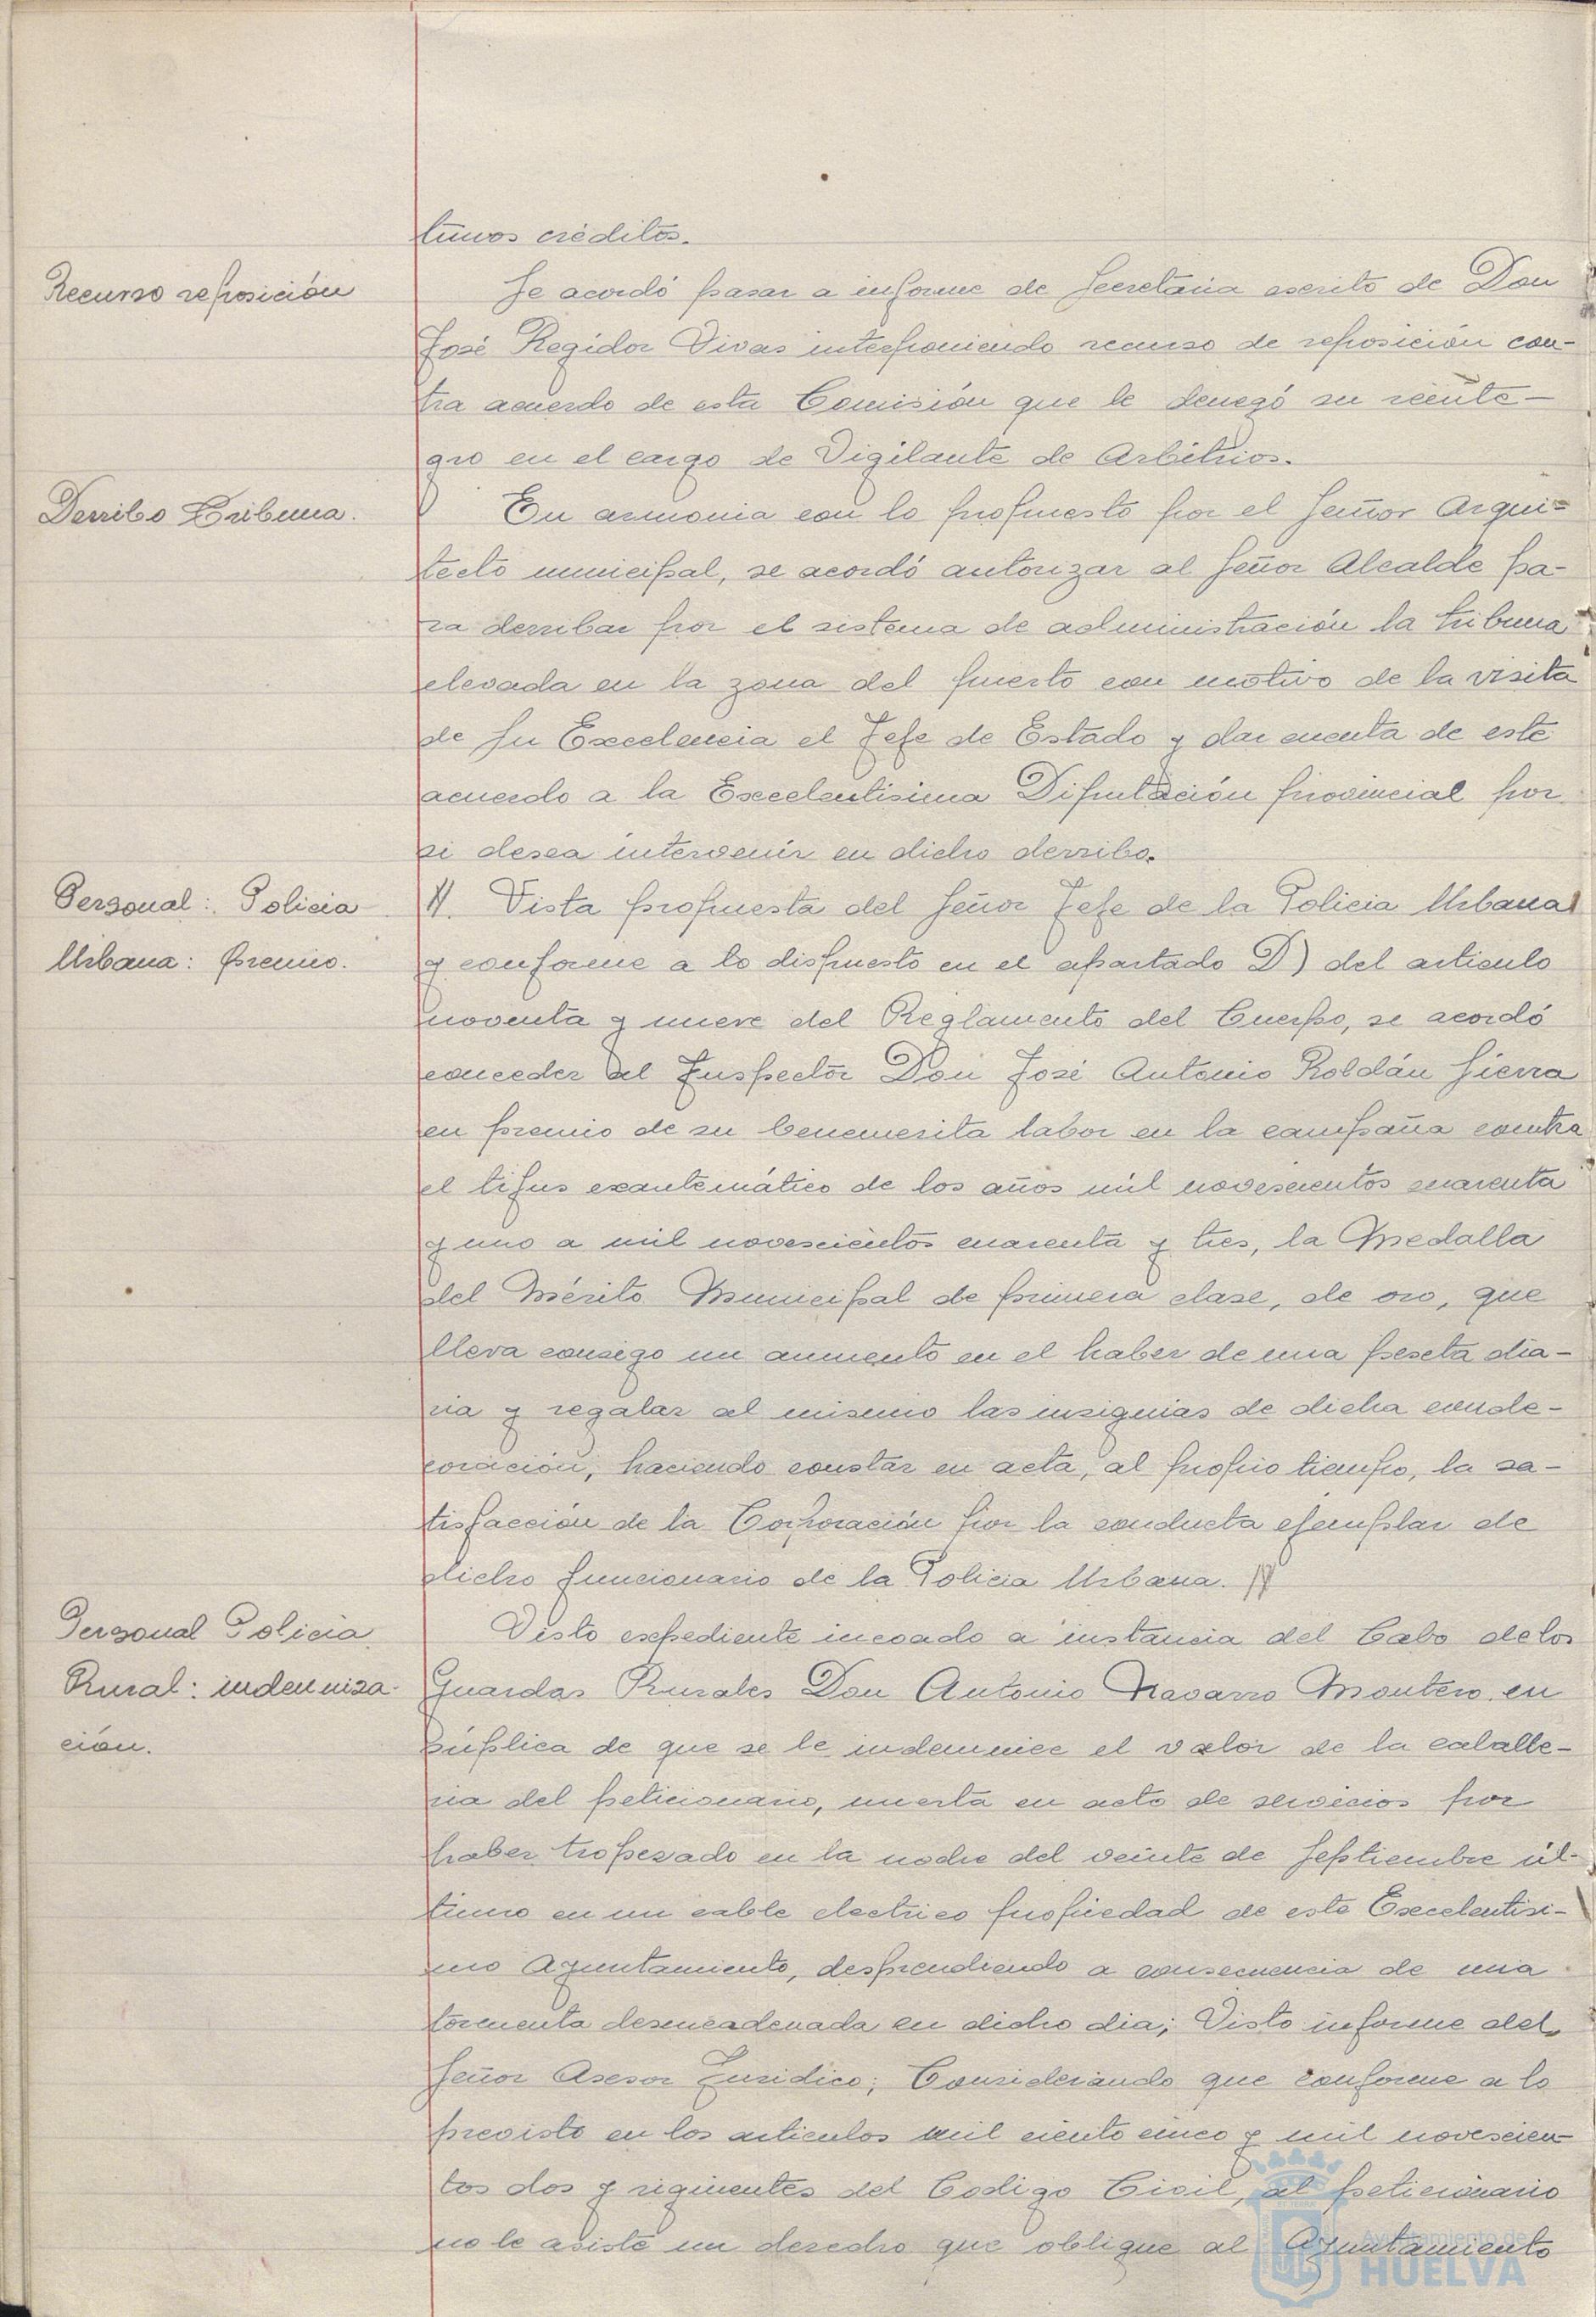 tunos créditos.
Recurso reposición
Se acordó pasar a informe de Secretaría escrito de Don
José Regidor Vivas interponiendo recurso de reposición con-
tra acuerdo de esta Comisión que le denegó su reinte-
gro en el cargo de Vigilante de Arbitrios.
Derribo Tribuna.
En armonia con lo propuesto por el Señor Arqui-
tecto municipal, se acordó autorizar al Señor Alcalde pa-
ra derribar por el sistema de administración la tribuna
elevada en la zona del puerto con motivo de la visita
de Su Excelencia el Jefe de Estado y dar cuenta de este
acuerdo a la Excelentisima Diputación provincial por
si desea intervenir en dicho derribo.
Personal: Policia
Urbana: premio.
Vista propuesta del Señor Jefe de la Policia Urbana
y conforme a lo dispuesto en el apartado D) del articulo
noventa y nueve del Reglamento del Cuerpo, se acordó
conceder al Inspector Don José Antonio Roldán Sierra
en premio de su benemerita labor en la campaña contra
el tifus exantemático de los años mil novescientos cuarenta
y uno a mil novescientos cuarenta y tres, la Medalla
del Mérito Municipal de primera clase, de oro, que
lleva consigo un aumento en el haber de una peseta dia-
ria y regalar al mismo las insignias de dicha conde-
coración, haciendo constar en acta, al propio tiempo, la sa-
tisfacción de la Corporación por la conducta ejemplar de
dicho funcionario de la Policia Urbana.
Personal Policia
Rural: indemniza-
ción.
Visto expediente incoado a instancia del Cabo de los
Guardas Rurales Don Antonio Navarro Montero, en
súplica de que se le indemnice el valor de la caballe-
ria del peticionario, muerta en acto de servicios por
haber tropezado en la noche del veinte de Septiembre úl-
timo en un cable electrico propiedad de este Excelentisi-
mo Ayuntamiento, desprendiendo a consecuencia de una
tormenta desencadenada en dicho dia; Visto informe del
Señor Asesor Juridico; Considerando que conforme a lo
previsto en los articulos mil ciento cinco y mil novescien-
tos dos y siguientes del Codigo Civil, al peticionario
no le asiste un derecho que obligue al Ayuntamiento
Ayuntamiento de
HUELVA